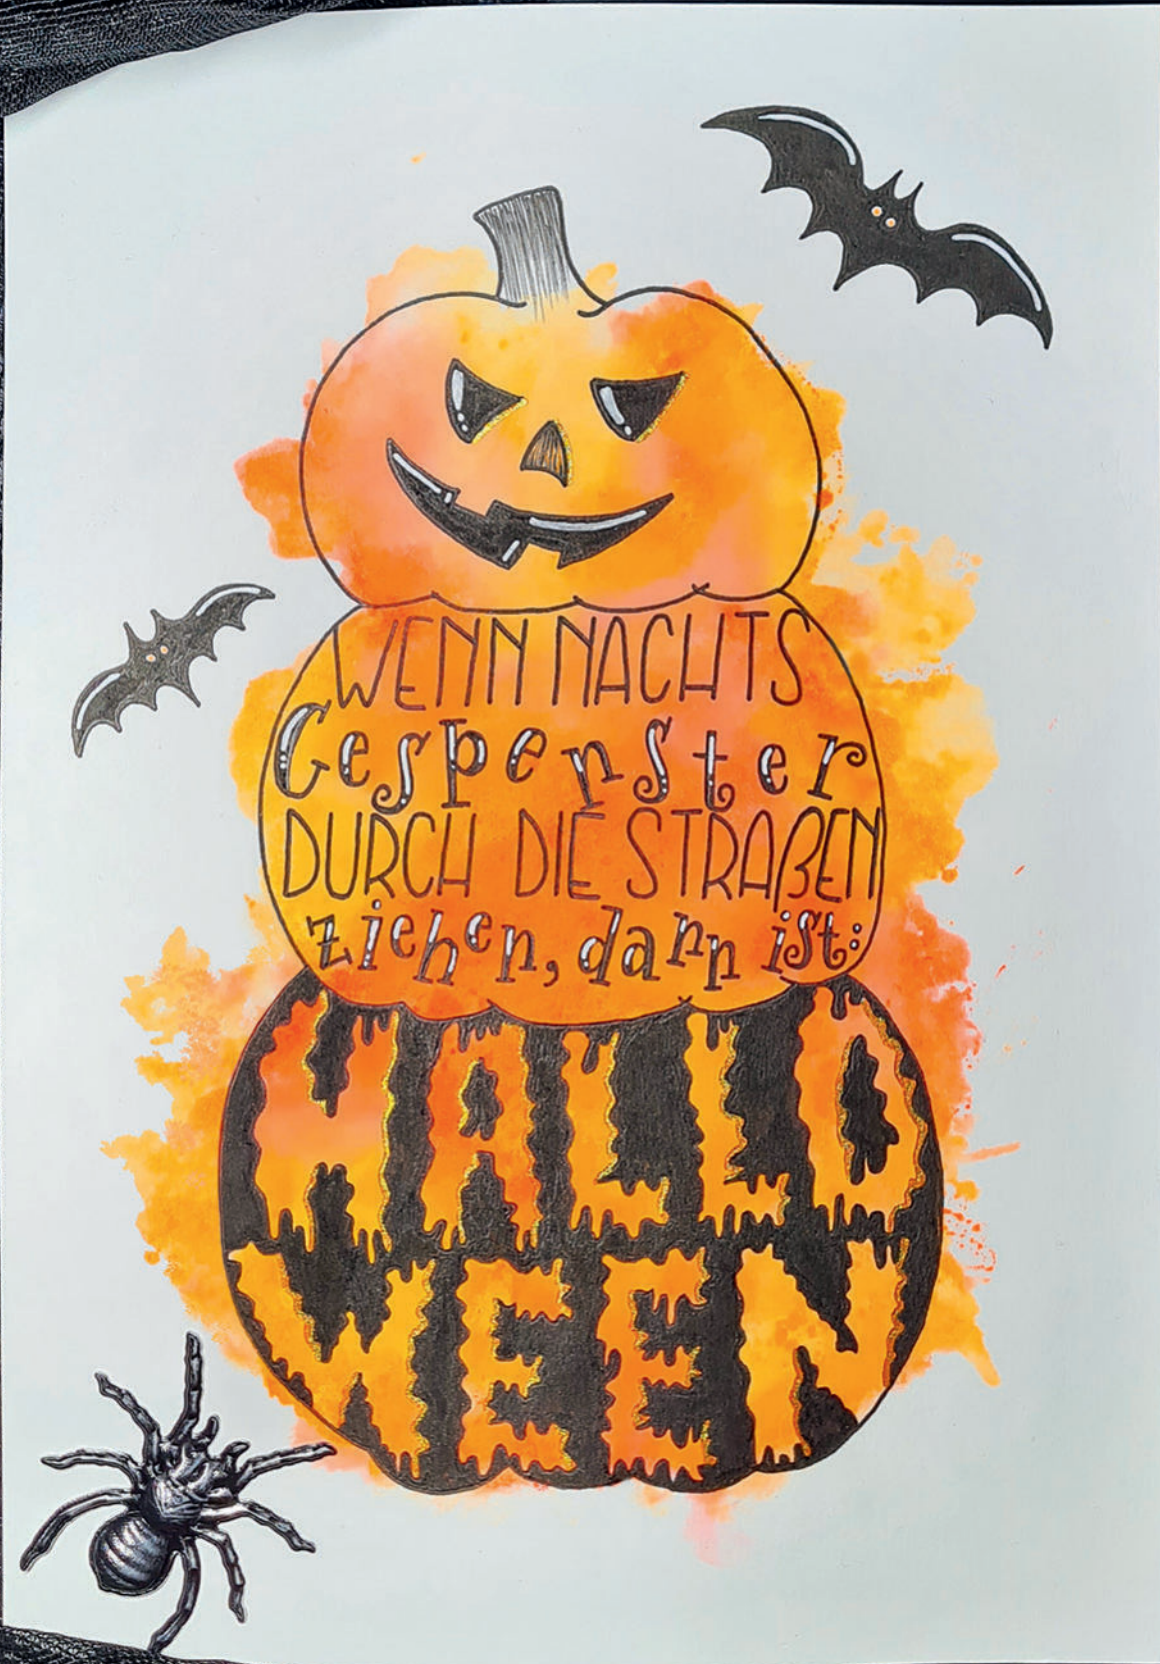 WENN NACHTS
Gespenster
DURCH DIE STRAßEN
ziehen, dann ist:
HALLO
WEEN